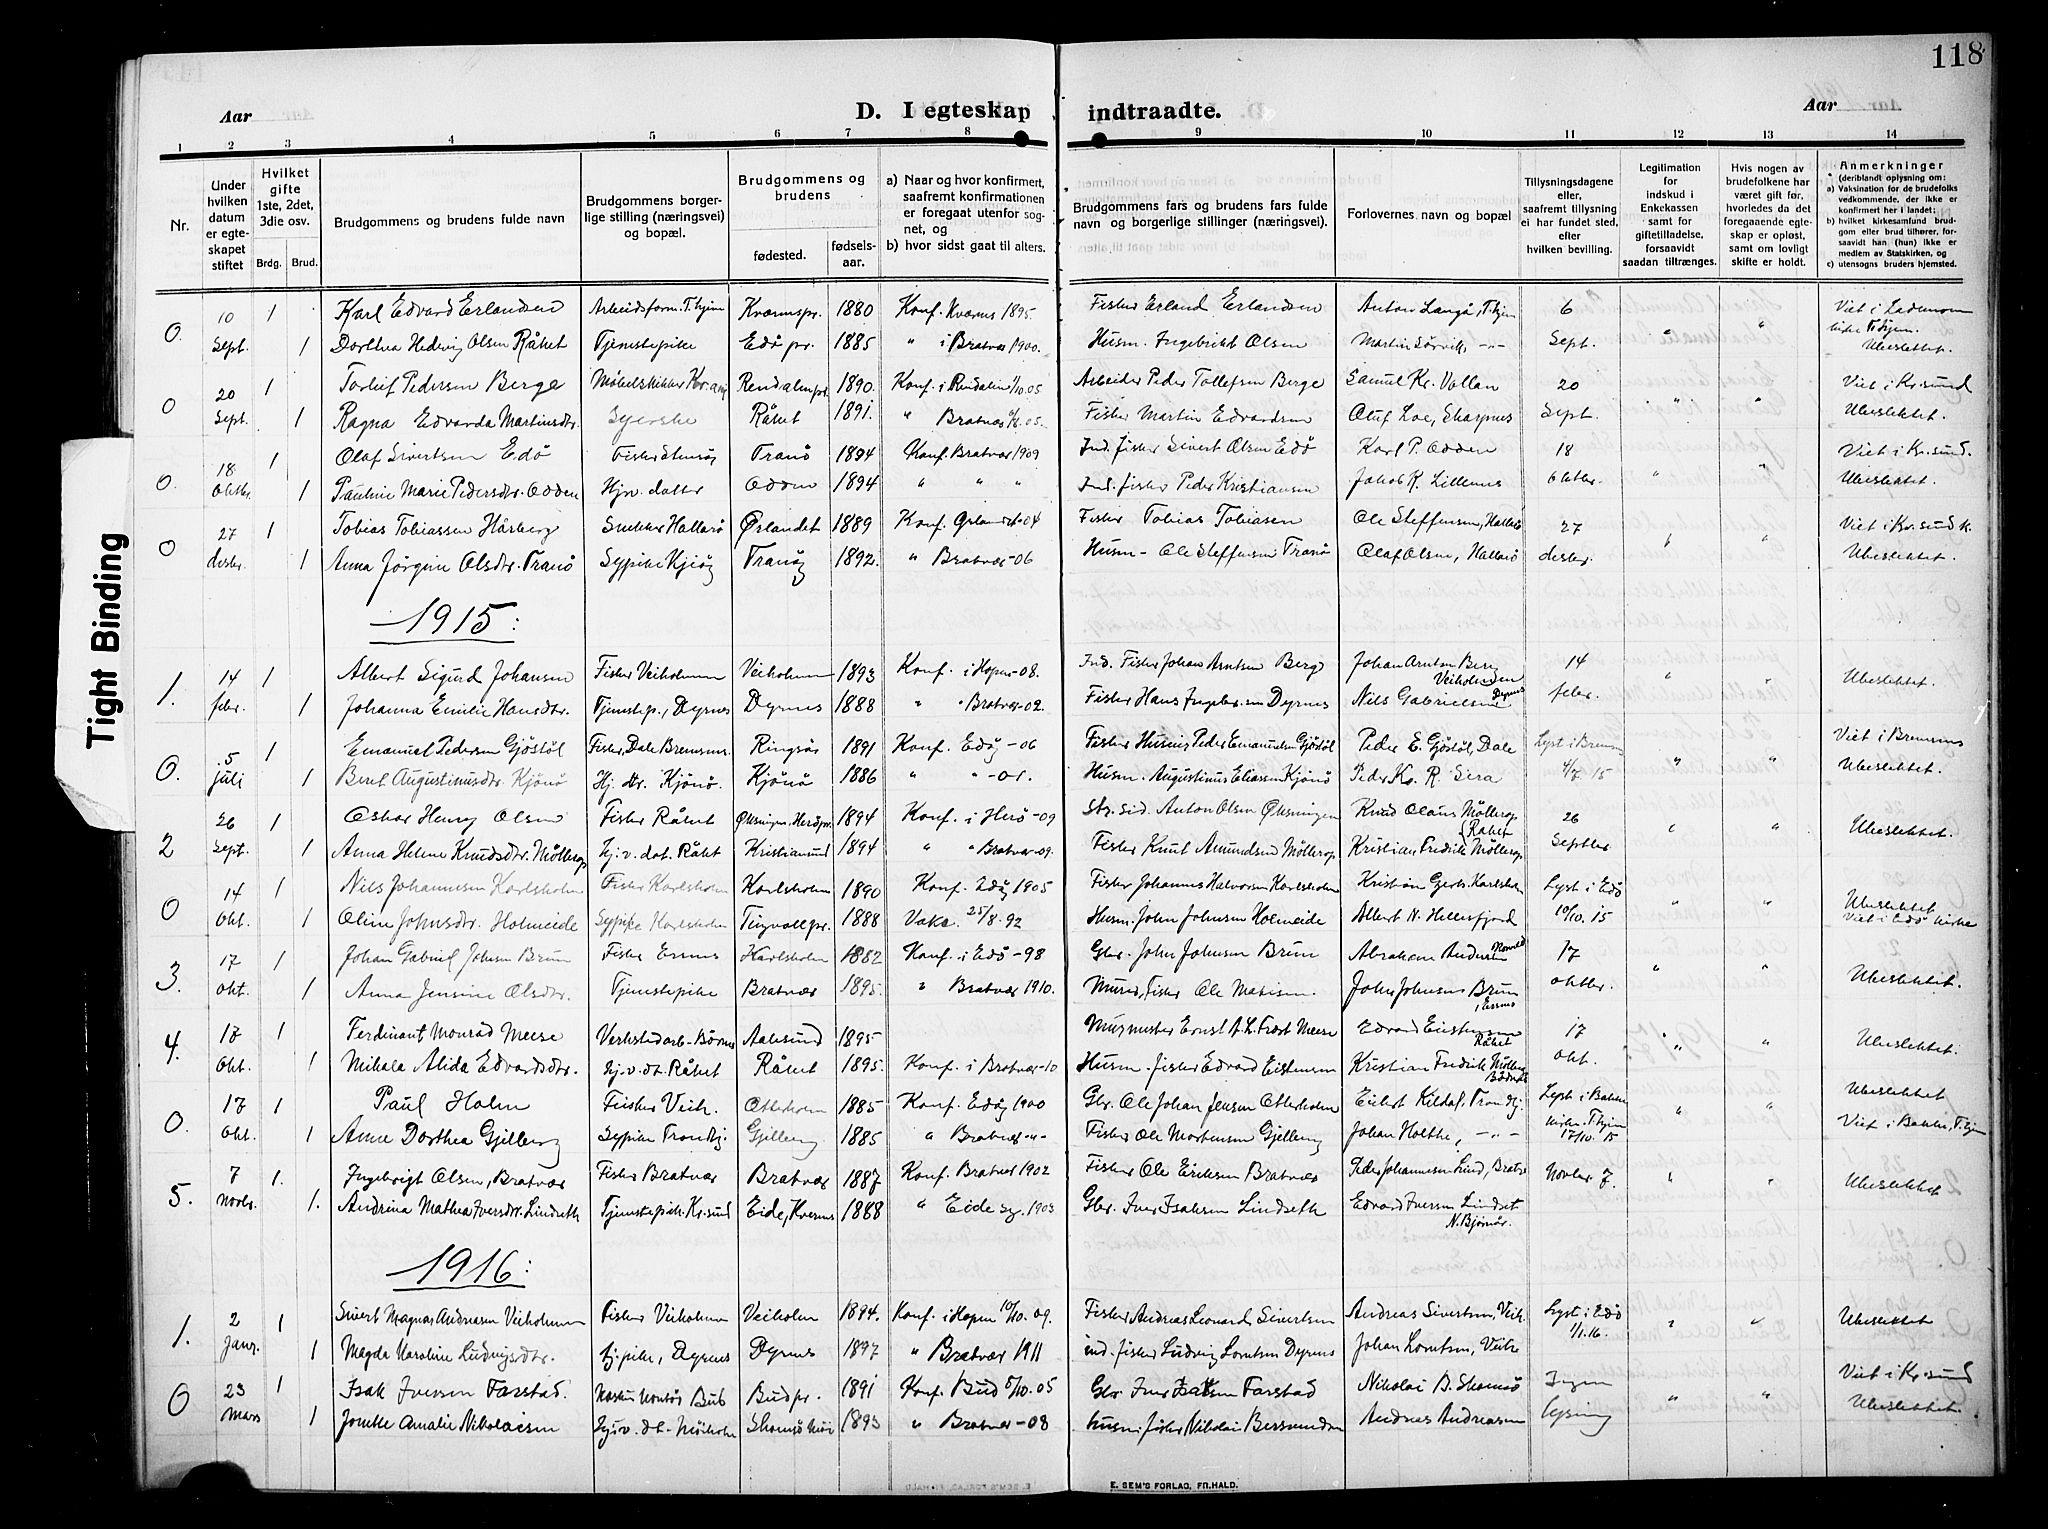 118
Aar
D. I egteskap indtraadte.
Aar
1 2 3 4 5 6 7 8 9 10 11 12 13 14
Nr.
Under hvilken datum er egteskapet stiftet
Hvilket gifte 1ste, 2det, 3die osv.
Brdg. Brud.
Brudgommens og brudens fulde navn
Brudgommens borgerlige stilling (næringsvei) og bopæl.
Brudgommens og brudens
fødested.
fødselsaar.
a) Naar og hvor konfirmert, saafremt konfirmationen er foregaat utenfor sognet, og
b) hvor sidst gaat til alters.
Brudgommens fars og brudens fars fulde navn og borgerlige stillinger (næringsvei).
Forlovernes navn og bopæl
Tillysningsdagene eller, saafremt tillysning ei har fundet sted, efter hvilken bevilling.
Legitimation for indskud i Enkekassen samt for giftetilladelse, forsaavidt saadan tiltrænges.
Hvis nogen av brudefolkene har været gift før, hvorledes da det foregaaende egteskap er opløst, samt om lovligt skifte er holdt.
Anmerkninger (deriblandt oplysning om:
a) Vaksination for de brudefolks vedkommende, der ikke er konfirmert her i landet;
b) hvilket kirkesamfund brudgom eller brud tilhører, forsaavidt han (hun) ikke er medlem av Statskirken, og
c) utensogns bruders hjemsted.
0 10 1 Karl Edvard Erlandsen Arbeidsform. T.hjem Kvernspr. 1880 Konf. Kværns 1895 Fisker Erland Erlandsen Anton Langø, T.hjem 6 Viet i Lademoen
Sept. 1 Dorthea Hedvig Olsen Råket Tjenestepike Edø pr. 1885 " i Bratvær 1900. Husm. Ingebrikt Olsen Martin Sørvik -"- Sept. " " kirke T.hjem. Ubeslektet.
0 20 1 Torleif Pedersen Berge Møbelsnikker Rendalen pr. 1890 Konf. i Rendalen 1/10.05 Arbeider Peder Tollefsen Berge Samuel Kr. Vollan 20 Viet i Kr.sund
Sept. 1 Ragna Edvarda Martinsdtr. Syerske Råket 1891. " Bratvær 05. Fisker Martin Edvardsen Oluf Loe, Skarpnes Sept. " " Ubeslektet.
0 18 1 Olaf Sivertsen Edø Fisker Tranø 1894 Konf. Bratvær 1909 Ind. fisker Sivert Olsen Edø Karl P. Odden 18 Viet i Kr.sund.
Oktbr. 1 Pauline Marie Pedersdtr. Odden Hjv. datter Odden 1894 " " " Ind. fisker Peder Kristiansen Jakob K. Lillenes Oktbr. " " Ubeslektet.
0 27 1 Tobias Tobiassen Hårberg Snekker Hallarø Ørlandet 1889 Konf. Ørlandet -04 Fisker Tobias Tobiasen Ole Steffensen, Hallarø 27 Viet i Kr.sund k.
desbr. 1 Anna Jørgine Olsdtr. Tranø Sypike Kjiøy Tranøy 1892. " Bratvær -06 Husm - Ole Steffensen Tranø Olaf Olsen, Hallarø desbr. " " Ubeslektet.
1915:
1. 14 1 Albert Sigurd Johansen Fisker Veiholmen Veiholmen 1893 Konf. i Hopen -08. Ind. Fisker Johan Arntsen Berg Johan Arnton Berg Veiholmen 14
febr. 1 Johanna Emilie Hansdtr. Tjenstep., Dyrnes Dyrnes 1888 " " Bratvær -02. Fisker Hans Ingebr.sen Dyrnes Nils Gabrielsen Dyrnes febr. " " Ubeslektet.
0. 5 1 Emanuel Pedersen Gjøstøl Fisker, Dale Bremsnes. Ringsøs 1891 Konf. Edøy -06 Fisker Husm. Peder Emanuelsen Gjøstøl Peder E. Gjøstøl Dale Lyst i Bremsn. Viet i Bremsnes
juli 1 Beret Augustinusdtr. Kjønø Hj. dtr. Kjønø. Kjønø 1886 " " -01. Husm. Augustinus Eliassen Kjønø Peder Kr. R. Sera 4/7 15 " " Ubeslektet.
2 26 1 Oskar Henry Olsen Fisker Råket Øksningen, Herøpr. 1894 Konf. i Herø -09 Str. sid. Anton Olsen Øksningen Knud Olaus Møllerop Råket 26
Sept. 1 Anna Helene Knudsdtr. Møllerop hj. v. dat. Råket Kristiansund 1894 " " Bratvær -09. Fisker Knut Amundsen Møllerop Kristian Fredrik Møllerop Septbr. " " Ubeslektet.
0 14 1 Nils Johannesen Karlsholm Fisker Karlsholm Karlsholm 1890 Konf. Edøy 1905 Fisker Johannes Halvorsen Karlsholm Kristian Gjerts. Karlsholm Lyst i Edø Ubeslektet
Okt. 1 Oline Johnsdtr. Holmeide Sypike Karlsholm Tingvoll pr. 1888 Vakc. 25/8.92 Husm. John Johnsen Holmeide Albert H. Hellesfjord 10/10. 15 " " Viet i Edø kirke
3. 17 1 Johan Gabriel Johnsen Brun Fisker Ernes Karlsholm 1882 Konf. i Edø -98 Gbr. John Johnsen Brun Abraham Andersen 17
Okt. 1 Anna Jensine Olsdtr. Tjenestepike Bratvær 1895. " Bratvær 1910. Murer, fisker Ole Mathisen. John Johnsen Brun oktbr. " " Ubeslektet.
4. 17 1 Ferdinant Monrad Meese Verkstedarb - Aalesund 1895 Murmester Ernst A. L. Frost Meese Edvard Eistensen Råket 17
Okt. 1 Nikola Alida Edvardsdtr. hj. v. dt. Råket Råket 1895. Konf. i Bratvær -10 Husm. fisker Edvard Eistensen Kristian Fredrik Møllerop okt. " " Ubeslektet.
0. 17 1 Paul Holm Fisker Veih. Otterholm 1885 Konf. Edøy 1900 Gbr. Ole Johan Jensen Otterholm Eilert Kildal, Trondhj. Lyst i Bakke Ubeslektet
Okt. 1 Anne Dorthea Gjelberg Sypike Trondhj. Gjelberg 1885 " Bratvær -"- Fisker Ole Mortensen Gjelberg Johan Holthe, -"- kirke T.hjem 17/10. 15 " " Viet i Bakke, T.hjem
5. 7 1. Ingebrigt Olsen, Bratvær Fisker Bratvær Bratvær 1887 Konf. Bratvær 1902 Fisker Ole Eriksen Bratvær Peder Johannesen Lund, Bratv. Novbr 7.
novbr. 1. Andrina Mathea Iversdtr. Lindseth Tjenestepik. Kr.sund Eide, Kvernes 1888 " Eide sg. 1903 Gbr. Iver Isaksen Lindseth Edvard Iversen Lindset N. Bjørnør. " " Ubeslektet
1916:
1. 2 1 Sivert Magnus Andreasen Veiholmen Fisker Veiholmen Veiholm 1894. Konf. i Hopen 10/10.09. Fisker Andreas Leonard Sivertsen Andreas Sivertsen, Veih. Lyst i Edø
Janr. 1 Magda Karoline Ludvigsdtr. hj. pike, Dyrnes Dyrnes 1897 " Bratvær 1911 ind. fisker Ludvig Lorntsen Dyrnes Johan Lorntsen, Veih. 1/1. 16. " " Ubeslektet
0 23 1 Isak Iversen Farstad. Bud Budpr. 1891 Konf. Bud 5/10.05 Gbr. Iver Isaksen Farstad Nikolai B. Skomsø Ingen Viet i Kr.sund
Mars 1 Jonette Amalie Nikolaisen hjv. dt. Skomsø 1893 " Bratvær -08 husm. fisker Nikolai Berntsen Andreas Andreasen lysning " " Ubeslektet.
Tight Binding
E. SEM'S FORLAG, FR.HALD.